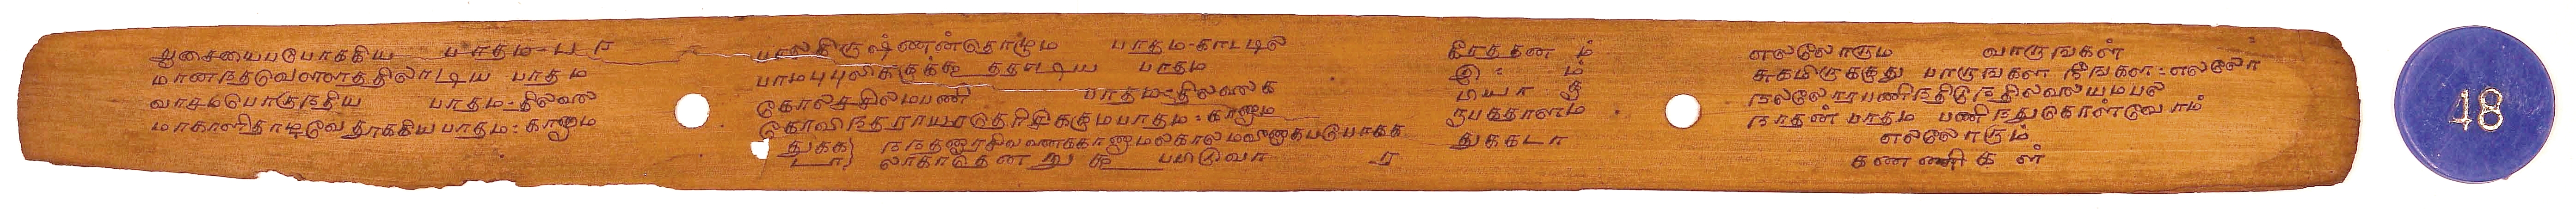 ஆசையைபபோககிய பாதம-ப ர
மானநதடுவெளாததிலாடிய பாதம
வாசமபொருநதிய பாதம-தில்லை
மாகாளிதாடவேதூககியபாதம: காணும
பாலகிருஷ்ணன்தொழும பாதம-காடடில
பாமபுபுலிகளுக்கு ததாடிய பாதம
கோலசசிலமபணி பாதம-தில்லைக
கோவிநதராயரடுததிரிககுமபாதம: காணும
துகக நநதனார
டா
கீரததன ம்
இ : ம்
பியா கு
ரூபகதாளம
துககடா
எலலோரும வாருஙகள்
சுகமிருககுது பாருஙகள நீஙகள: எலலோ
நலலோரபணிநதிடுநதிலலையமபல
நாதன் பாதம பணிநதுகொள்வோம்
எலலோரும்
கண ணி க ள்
48